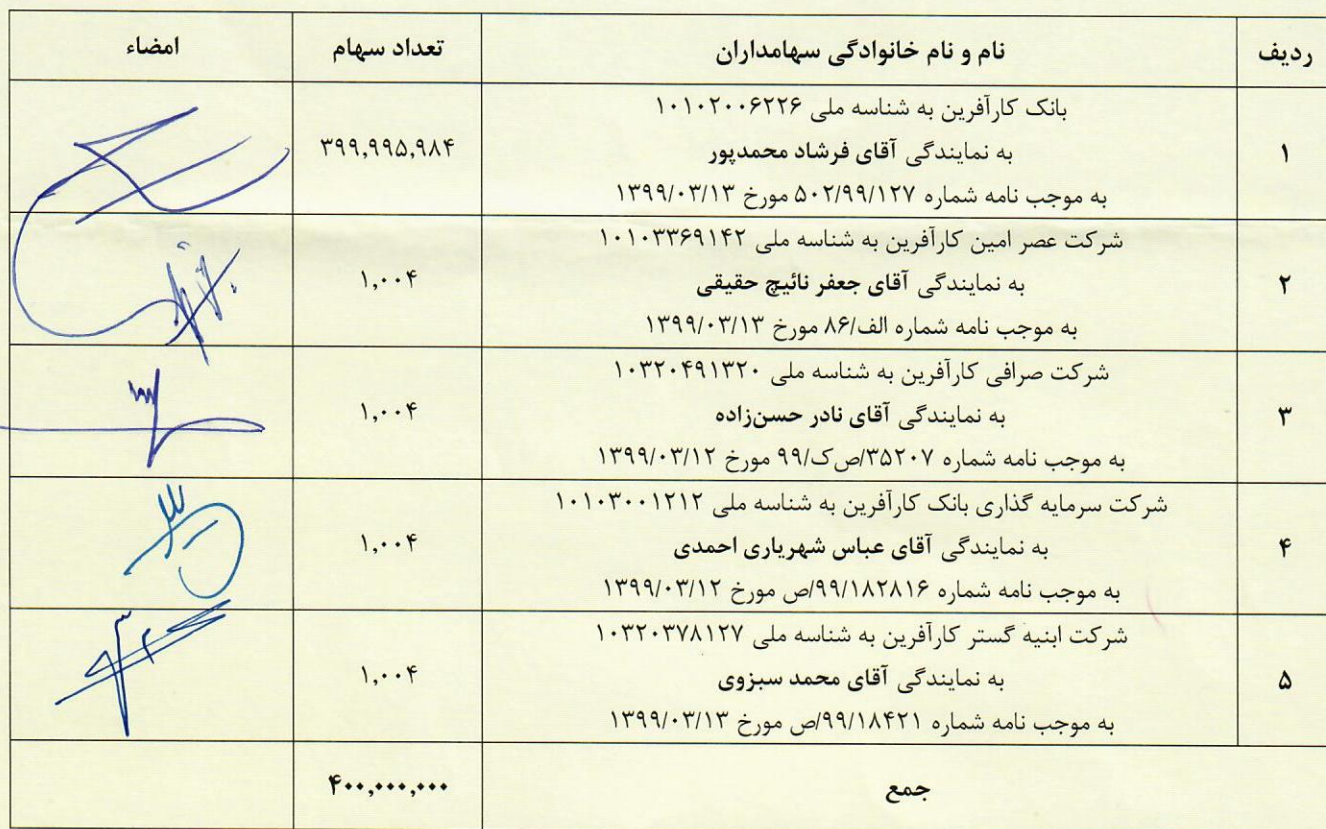 ردیف
نام و نام خانوادگی سهامداران
تعداد سهام
امضاء
۱
بانک کارآفرین به شناسه ملی ۱۰۱۰۲۰۰۶۲۲۶
به نمایندگی آقای فرشاد محمدپور
به موجب نامه شماره ۵۰۲/۹۹/۱۲۷ مورخ ۱۳۹۹/۰۳/۱۳
۳۹۹,۹۹۵,۹۸۴
۲
شرکت عصر امین کارآفرین به شناسه ملی ۱۰۱۰۳۳۶۹۱۴۲
به نمایندگی آقای جعفر نائیچ حقیقی
به موجب نامه شماره الف/۸۶ مورخ ۱۳۹۹/۰۳/۱۳
۱,۰۰۴
۳
شرکت صرافی کارآفرین به شناسه ملی ۱۰۳۲۰۴۹۱۳۲۰
به نمایندگی آقای نادر حسن‌زاده
به موجب نامه شماره ۳۵۲۰۷/ص‌ک/۹۹ مورخ ۱۳۹۹/۰۳/۱۲
۱,۰۰۴
۴
شرکت سرمایه گذاری بانک کارآفرین به شناسه ملی ۱۰۱۰۳۰۰۱۲۱۲
به نمایندگی آقای عباس شهریاری احمدی
به موجب نامه شماره ۹۹/۱۸۲۸۱۶/ص مورخ ۱۳۹۹/۰۳/۱۲
۱,۰۰۴
۵
شرکت ابنیه گستر کارآفرین به شناسه ملی ۱۰۳۲۰۳۷۸۱۲۷
به نمایندگی آقای محمد سبزوی
به موجب نامه شماره ۹۹/۱۸۴۲۱/ص مورخ ۱۳۹۹/۰۳/۱۳
۱,۰۰۴
جمع
۴۰۰,۰۰۰,۰۰۰